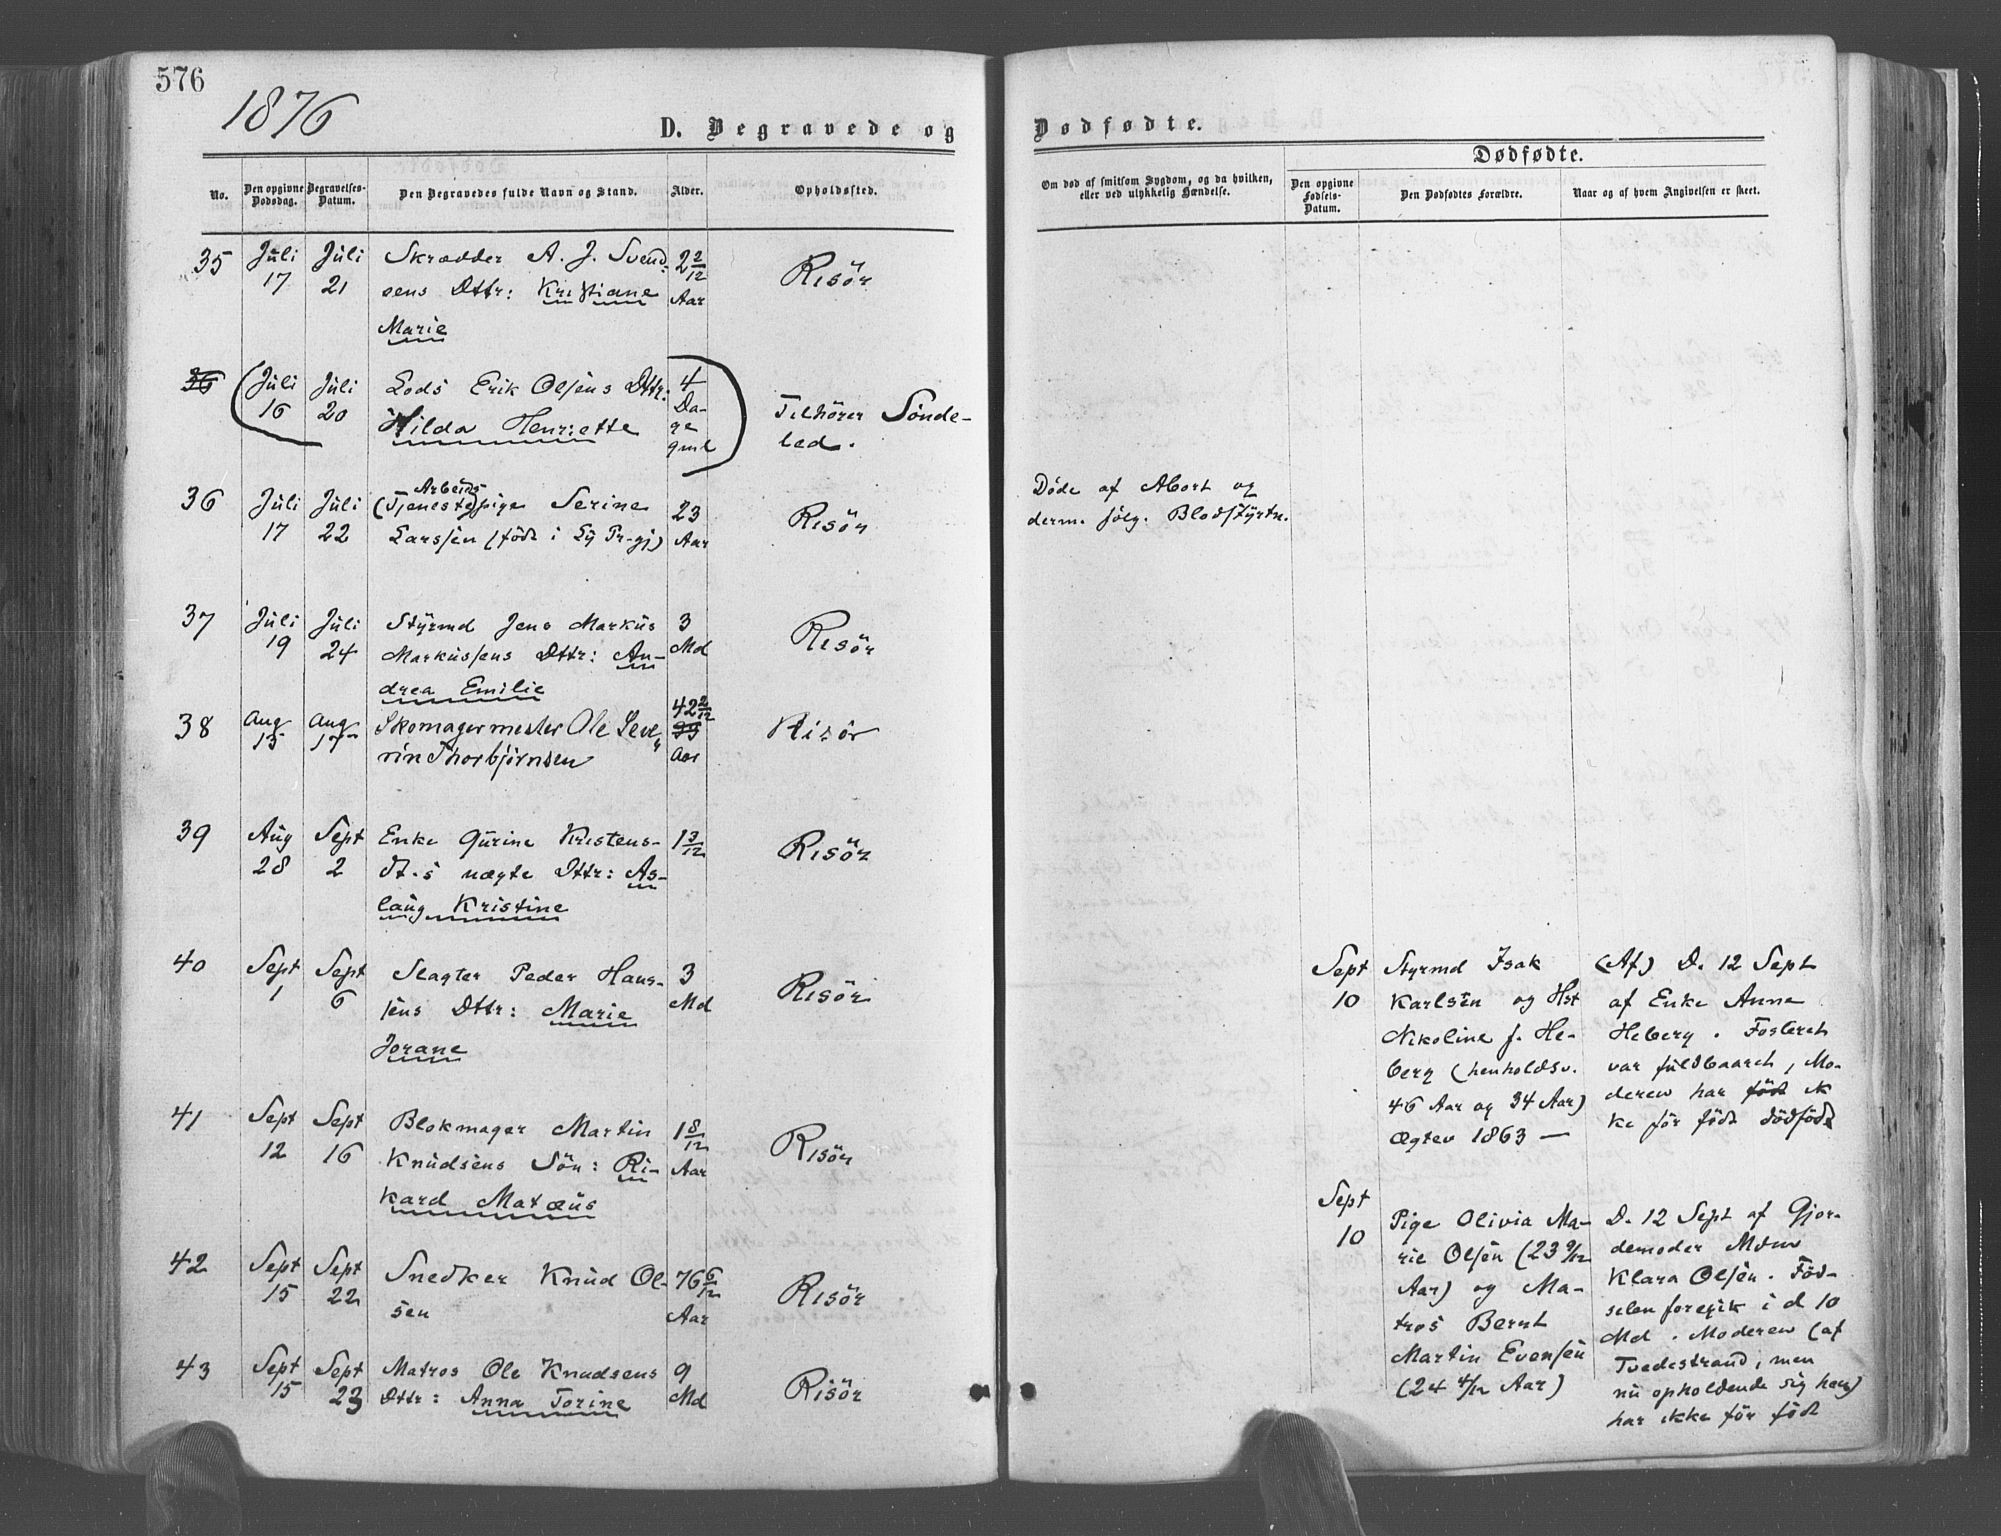 576
1876
D. Begravede og
Dødfødte.
Dødfødte.
No.
Den opgivne
Dødsdag.
Begravelses-
Datum.
Den Begravedes fulde Navn og Stand.
Alder.
Opholdssted.
Om død af smitsom Sygdom, og da hvilken,
eller ved ulykkelig Hændelse.
Den opgivne
Fødsels-
Datum.
Den Dødfødtes Forældre.
Naar og af hvem Angivelsen er skeet.
35
Juli
17
Juli
21
Skrædder A. J. Svend-
sens Dttr: Kristiane
Marie
2 2/12
Aar
Risör
36
Juli
16
Juli
20
Lods Erik Olsens Dttr:
Hilda Henriette
4
Da-
ge
gml
Tilhörer Sönde-
led.
36
Juli
17
Juli
22
Arbeids
(Tjeneste)pige Serine
Larssen (föd i Pr-gj)
23
Aar
Risör
Döde af Abort og
derm. fölg. Blodstyrtn.
37
Juli
19
Juli
24
Styrmd Jens Markus
Markussens Dttr: An-
drea Emilie
3
Md
Risör
38
Aug
13
Aug
17
Skomagermester Ole Seve-
rin Thorbjörnsen
42 2/12
Aar
Risör
39
Aug
28
Sept
2
Enke Gurine Kristens-
dt.s uægte Dttr: As-
laug Kristine
1 3/12
Risör
40
Sept
1
Sept
6
Slagter Peder Hans-
sens Dttr: Marie
Jorane
3
Md
Risör
41
Sept
12
Sept
16
Blokmager Martin
Knudsens Sön: Ri-
kard Matæus
1 8/12
Aar
Risör
42
Sept
15
Sept
22
Snedker Knud Ol-
sen
76 6/12
Aar
Risör
43
Sept
15
Sept
23
Matros Ole Knudsens
Dttr: Anna Torine
9
Md
Risör
Sept
10
Styrmd Isak
Karlsen og Hst
Nikoline f. He-
berg (henholdsv.
46 Aar og 34 Aar)
Ægtev 1863 —
(Af) D. 12 Sept
af Enke Anne
Heberg. Fosteret
var fuldbaaret, Mo-
deren har födt ik
ke för födt dödfödt
Sept
10
Pige Olivia Ma-
rie Olsen (23 9/12
Aar) og Ma-
tros Bernt
Martin Evensen
(24 4/12 Aar)
D. 12 Sept af Gjor-
demoder Mdm
Klara Olsen. Föd-
selen foregik i d 10
Md. Moderen (af
Tvedestrand, men
nu opholdende sig her)
har ikke för födt